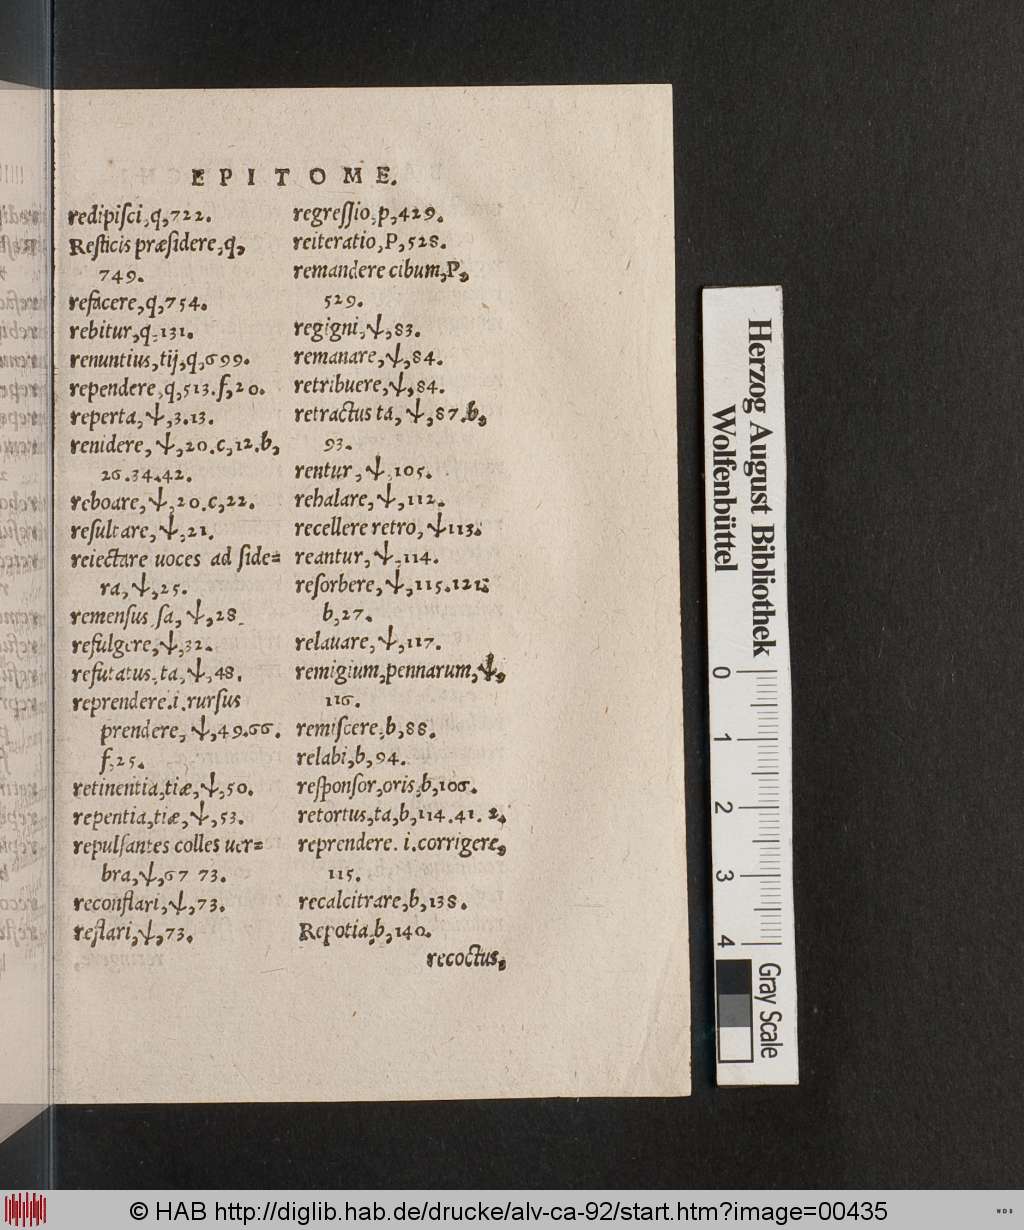 EPITOME.
redipiſci,q,722.
Reſticis præſidere,q,
749.
refacere,q,754.
rebitur,q,131.
renuntius,tij,q,699.
rependere,q,513.f,20.
reperta,ψ,3.13.
renidere,ψ,20.c,12.b,
26.34.42.
reboare,ψ,20.c,22.
reſultare,ψ,21.
reiectare uoces ad ſide=
ra,ψ,25.
remenſus ſa,ψ,28.
refulgere,ψ,32.
refutatus,ta,ψ,48.
reprendere.i.rurſus
prendere,ψ,49.66.
f,25.
retinentia,tiæ,ψ,50.
repentia,tiæ,ψ,53.
repulſantes colles uer=
bra,ψ,67 73.
reconflari,ψ,73.
reflari,ψ,73.
regreſſio,p,429.
reiteratio,P,528.
remandere cibum,P,
529.
regigni,ψ,83.
remanare,ψ,84.
retribuere,ψ,84.
retractus ta,ψ,87.b,
93.
rentur,ψ,105.
rehalare,ψ,112.
recellere retro,ψ113.
reantur,ψ,114.
reſorbere,ψ,115.121.
b,27.
relauare,ψ,117.
remigium,pennarum,ψ,
116.
remiſcere,b,88.
relabi,b,94.
reſponſor,oris,b,106.
retortus,ta,b,114.41.2,
reprendere.i.corrigere,
115.
recalcitrare,b,138.
Repotia,b,140.
recoctus,
Herzog August Bibliothek
Wolfenbüttel
0 1 2 3 4
Gray Scale
© HAB http://diglib.hab.de/drucke/alv-ca-92/start.htm?image=00435